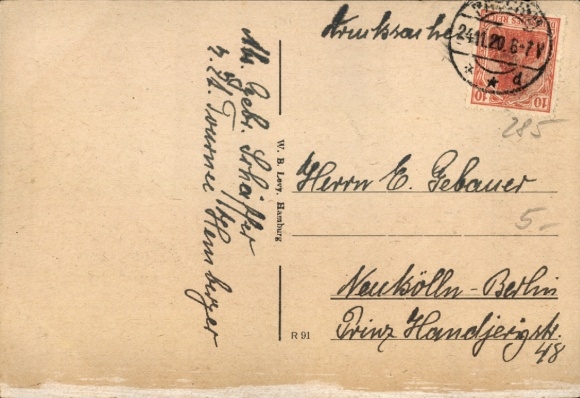 Drucksache
24.11.20. 6-7 V
* * d
10 10
285
Abs. Gebr. Schäffer
z. Zt. Tournee
W. B. Levy. Hamburg
Herrn E. Gebauer
5.-
Neukölln-Berlin
Prinz Handjerystr.
48
R 91